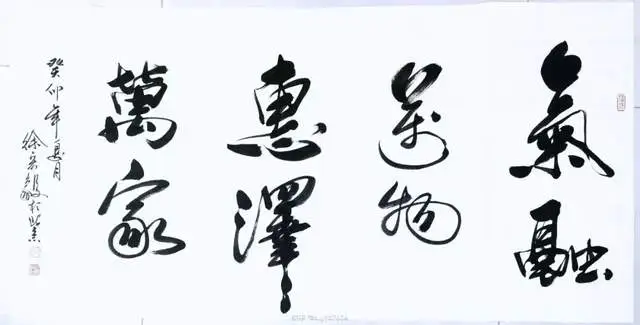 氣融
萬物
惠澤
萬家
癸卯年夏月
徐